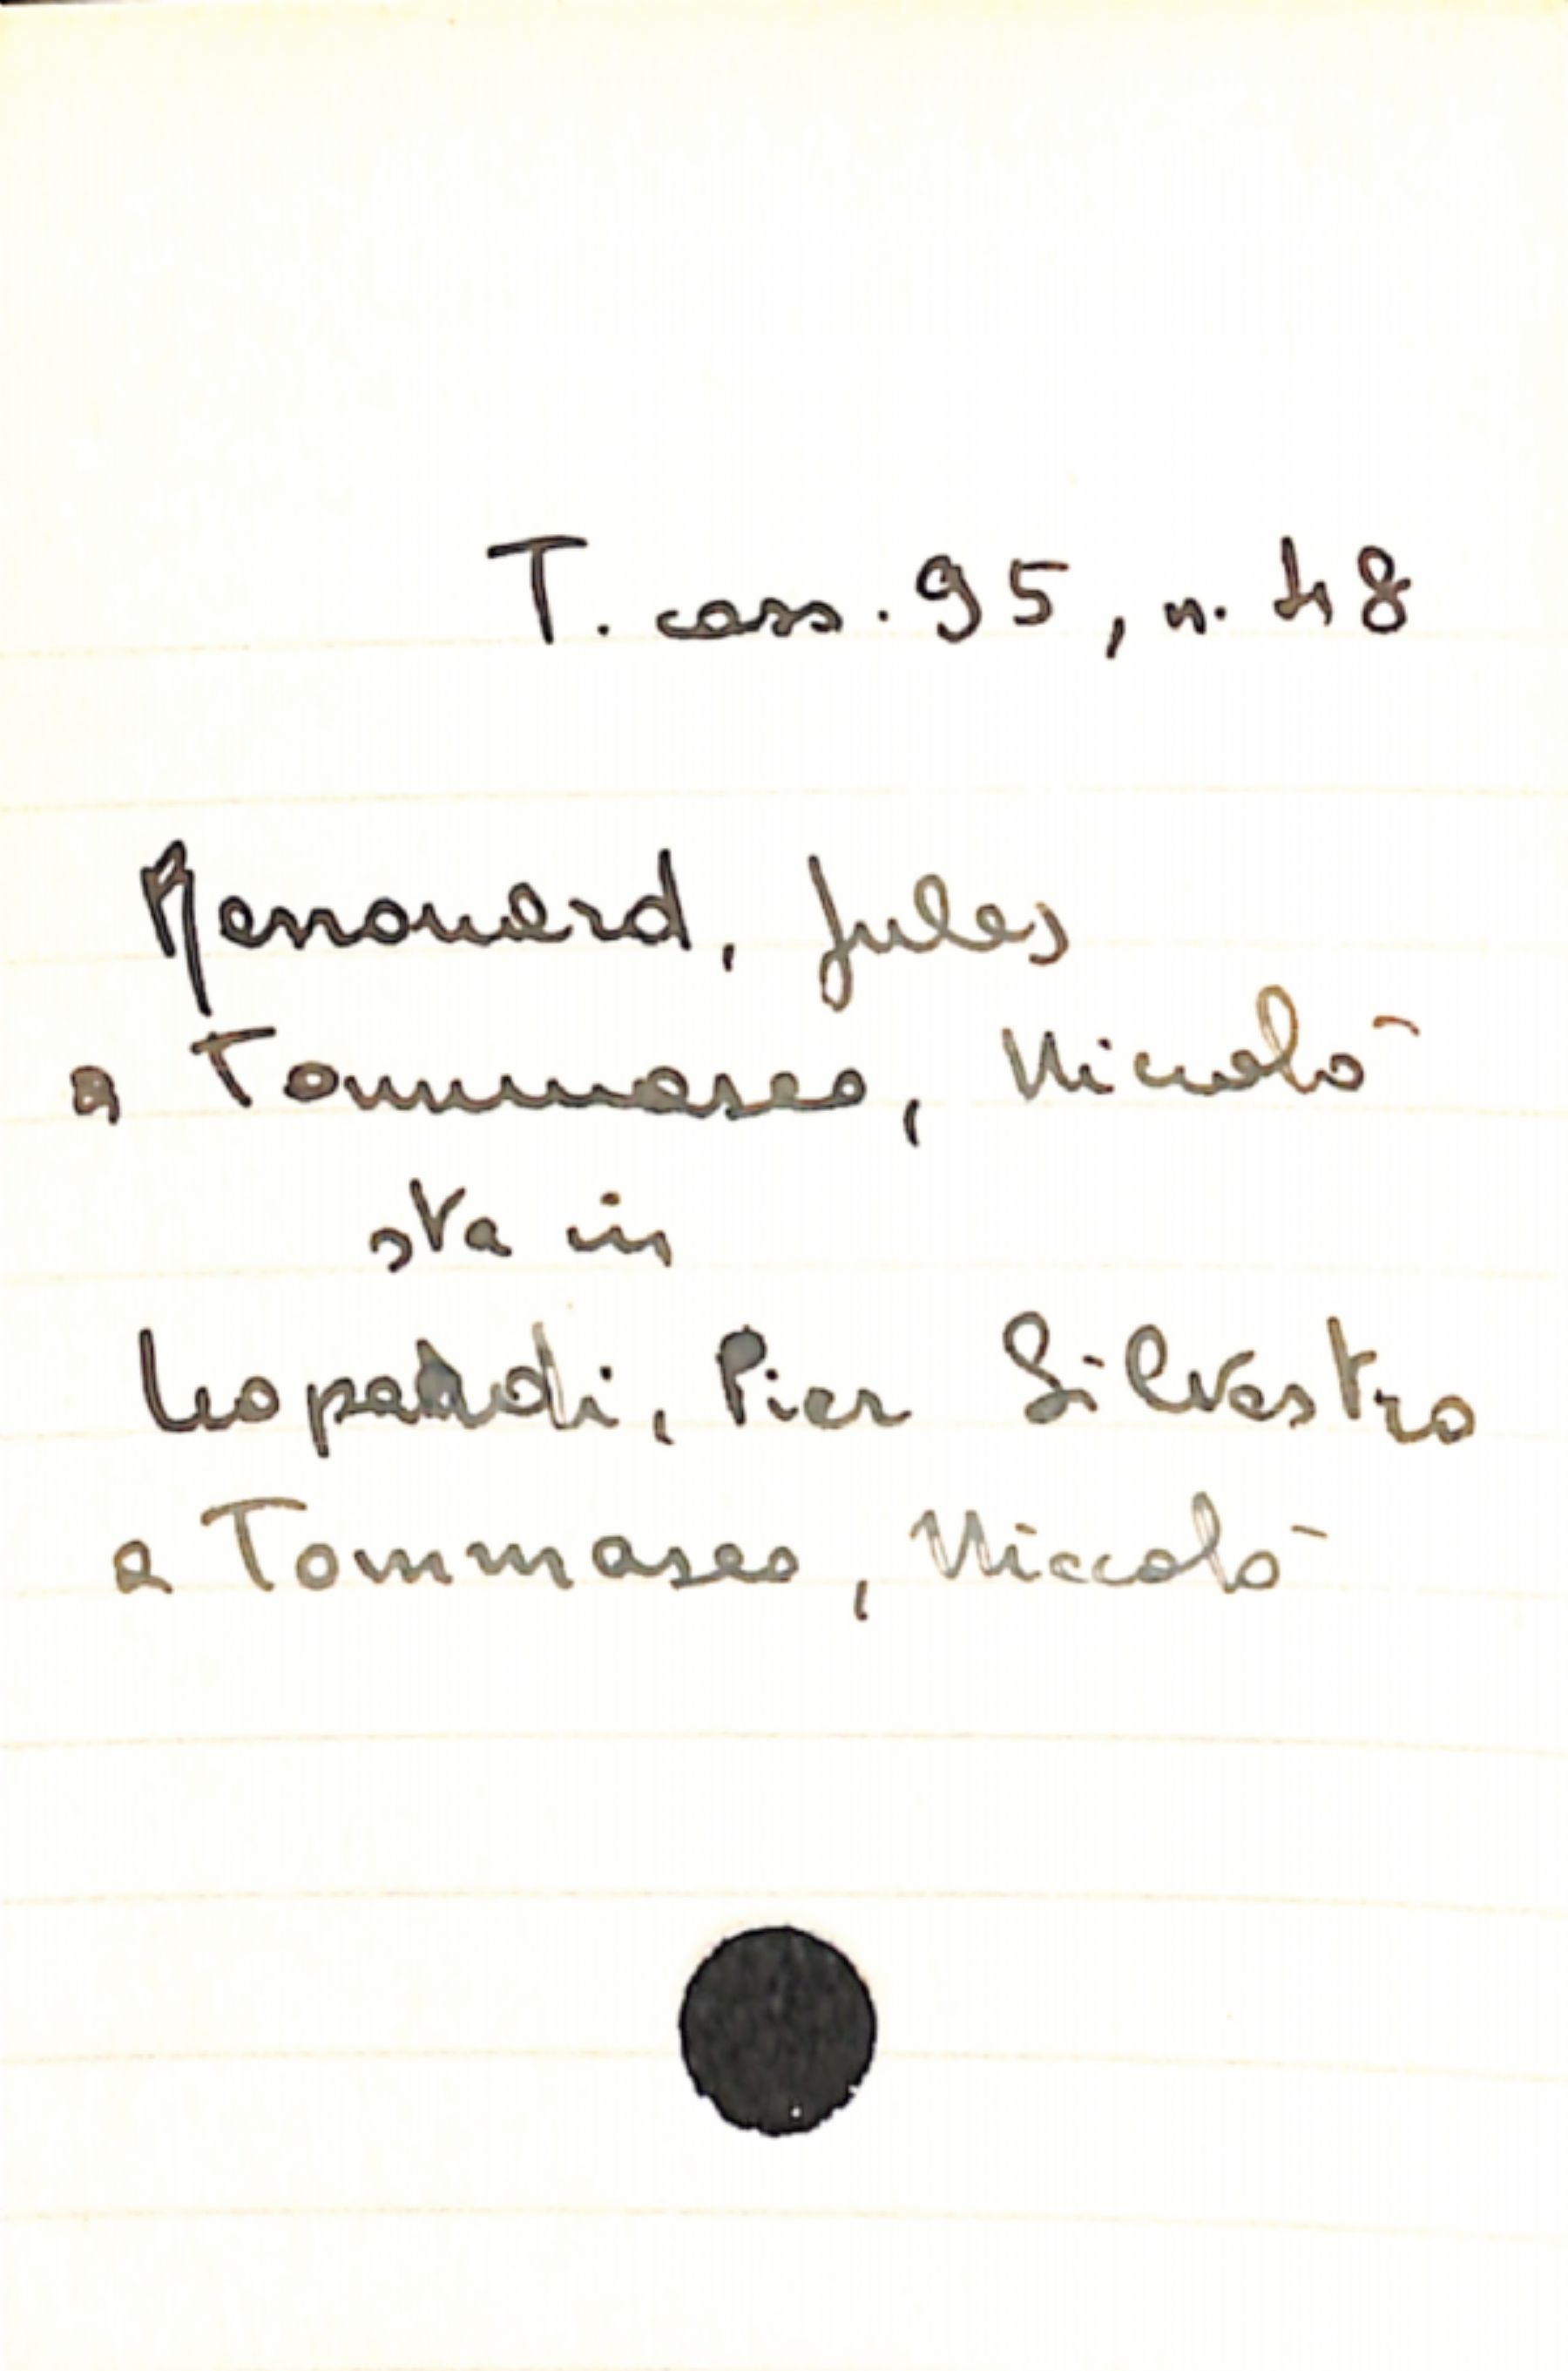 T. cass. 95, n. 48
Renouard, Jules
a Tommaseo, Niccolò
sta in
Leopardi, Pier Silvestro
a Tommaseo, Niccolò